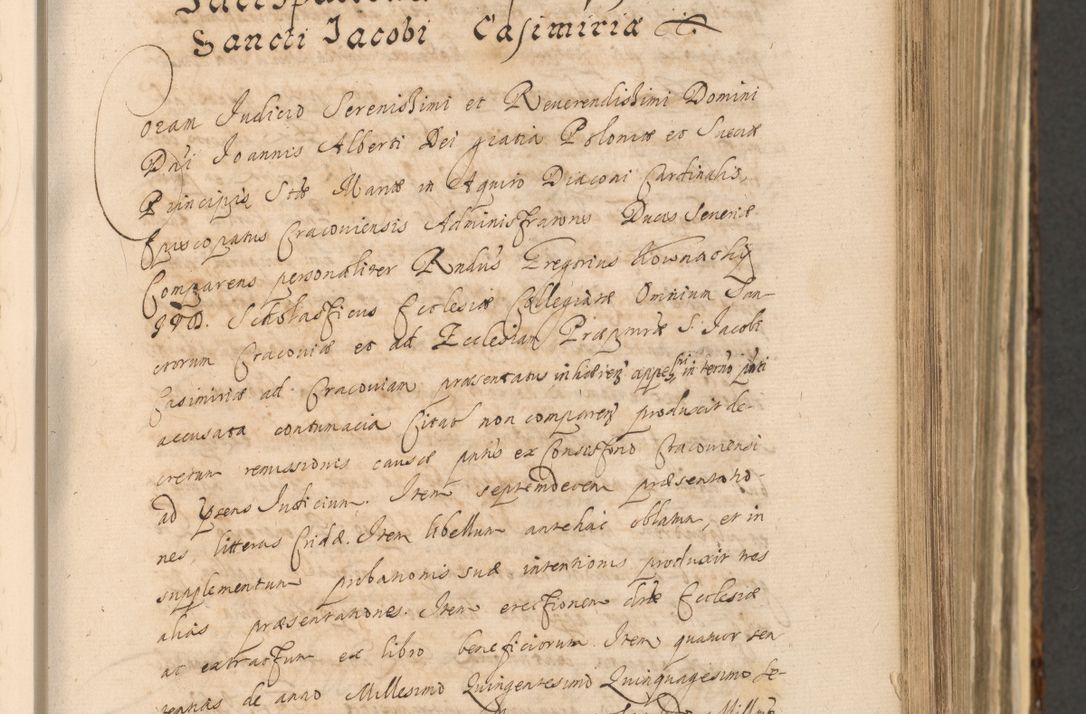 Sancti Jacobi Casimiriæ
Coram Judicio Serenissimi et Reverendissimi Domini
Dni Joannis Alberti Dei gratia Poloniæ et Sueciæ
Principis Stæ Mariæ in Aquiro Diaconi Cardinalis,
Episcopatus Cracoviensis Administratoris Ducis Severiæ
Comparens personaliter Rndus Gregorius Kownacky
Scholasticus Ecclesiæ Collegiatæ Omnium San-
ctorum Cracoviæ et ad Ecclesiam S. Jacobi
Casimiriæ ad Cracoviam præsentatus in termo
accusata contumacia Citat non comparen produxit de-
cretum remissionis causæ pntis ex Consistorio Cracoviensi
ad præsens Judicium. Item septemdecem præsentatio-
nes, litteras Cridæ. Item libellum antehac oblatum, et in
supplementum probationis suæ intentionis produxit tres
alias præsentationes. Item erectionem dictæ Ecclesiæ
ac extractum ex libro beneficiorum. Item quatuor sen
tentias de anno Millesimo Quingentesimo Quinquagesimo Se-